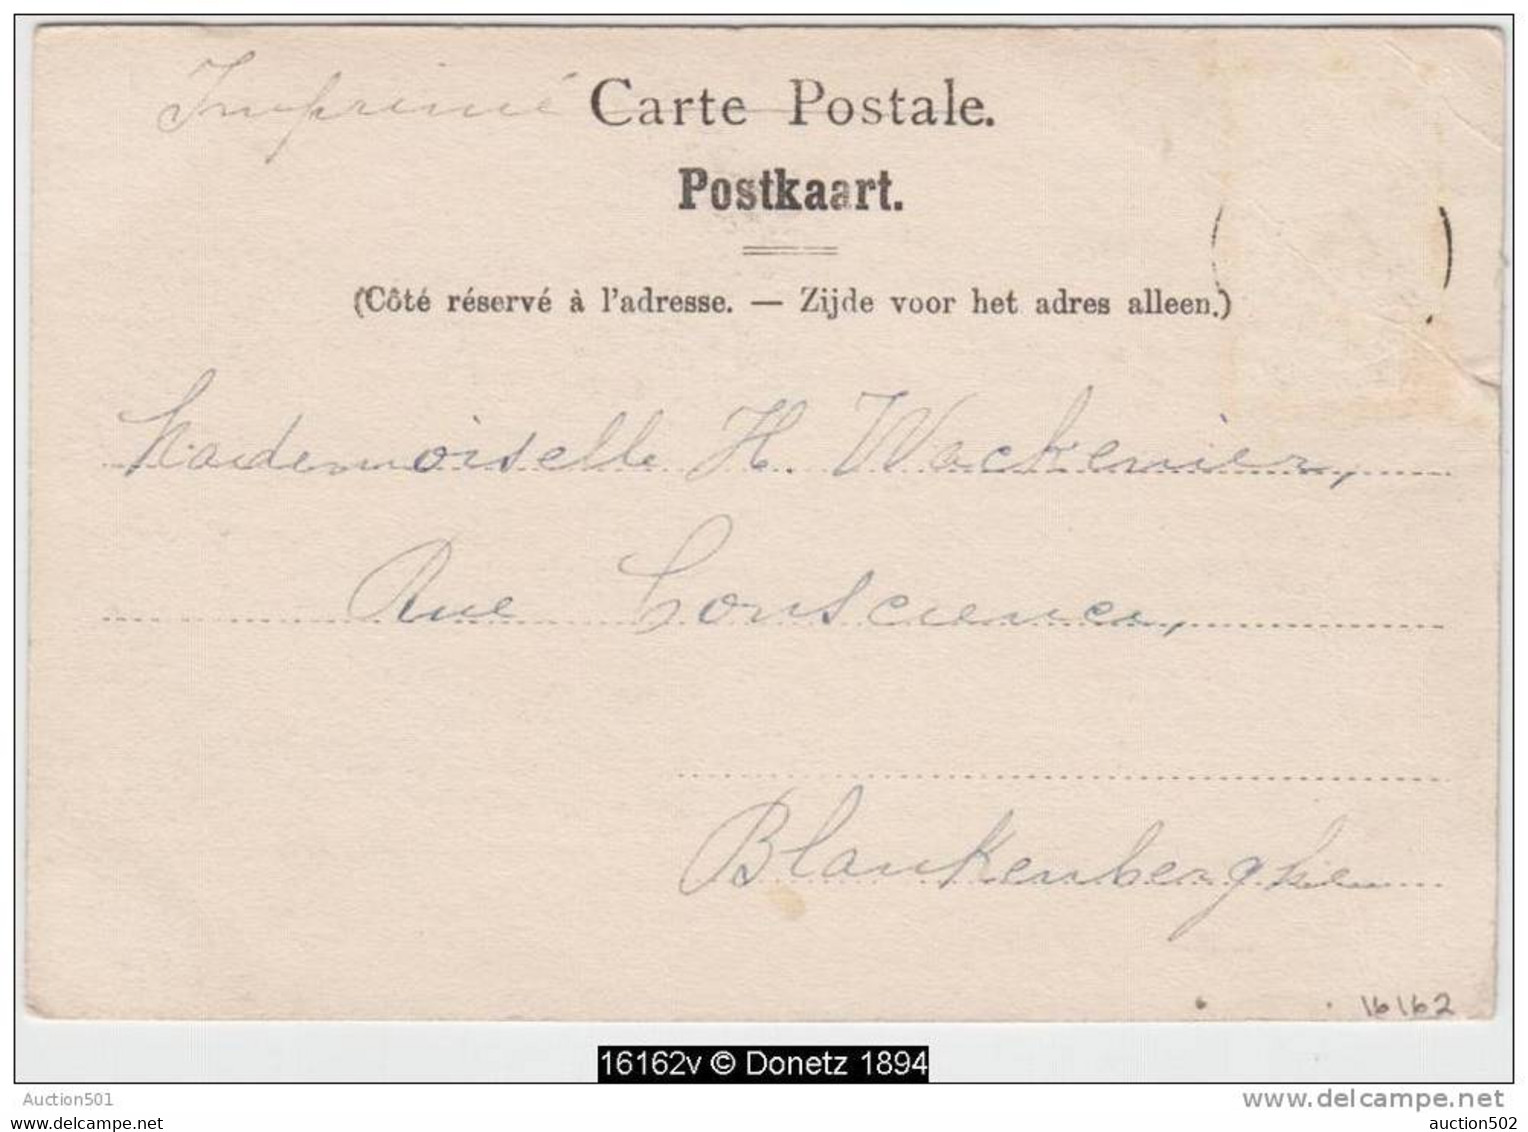 Imprimé Carte Postale.
Postkaart.
(Côté réservé à l'adresse. — Zijde voor het adres alleen.)
Mademoiselle H. Wackenier,
Rue Conscience,
Blankenberghe
16162
16162v © Donetz 1894
Auction501
www.delcampe.net
auction502